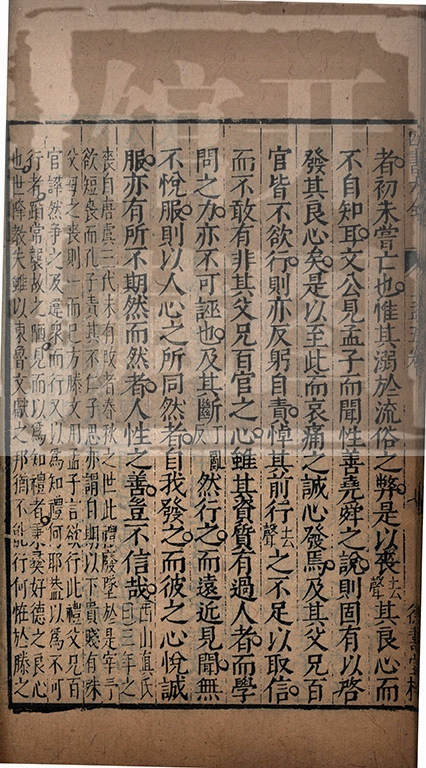 者初未嘗亡也惟其溺於流俗之弊是以喪去聲其良心而
不自知耳文公見孟子而聞性善堯舜之說則固有以啓
發其良心矣是以至此而哀痛之誠心發焉及其父兄百
官皆不欲行則亦反躬自責悼其前行去聲之不足以取信
而不敢有非其父兄百官之心雖其資質有過人者而學
問之力亦不可誣也及其斷丁亂反然行之而遠近見聞無
不悅服則以人心之所同然者自我發之而彼之心悅誠
服亦有所不期然而然者人性之善豈不信哉西山眞氏曰三年之
喪自唐虞三代未有改者春秋之世此禮廢墜於是宰予
欲短喪而孔子責其不仁子思亦謂自期以下貴賤有殊
父母之喪則一而已方滕文用孟子言欲行此禮父兄百
官譁然爭之及違衆而行又以為知禮何耶蓋以為不可
行者蹈常襲故之陋見而以為知禮者秉彝好德之良心
也世降教失雖以東魯文獻之邦猶不能行何惟於滕之